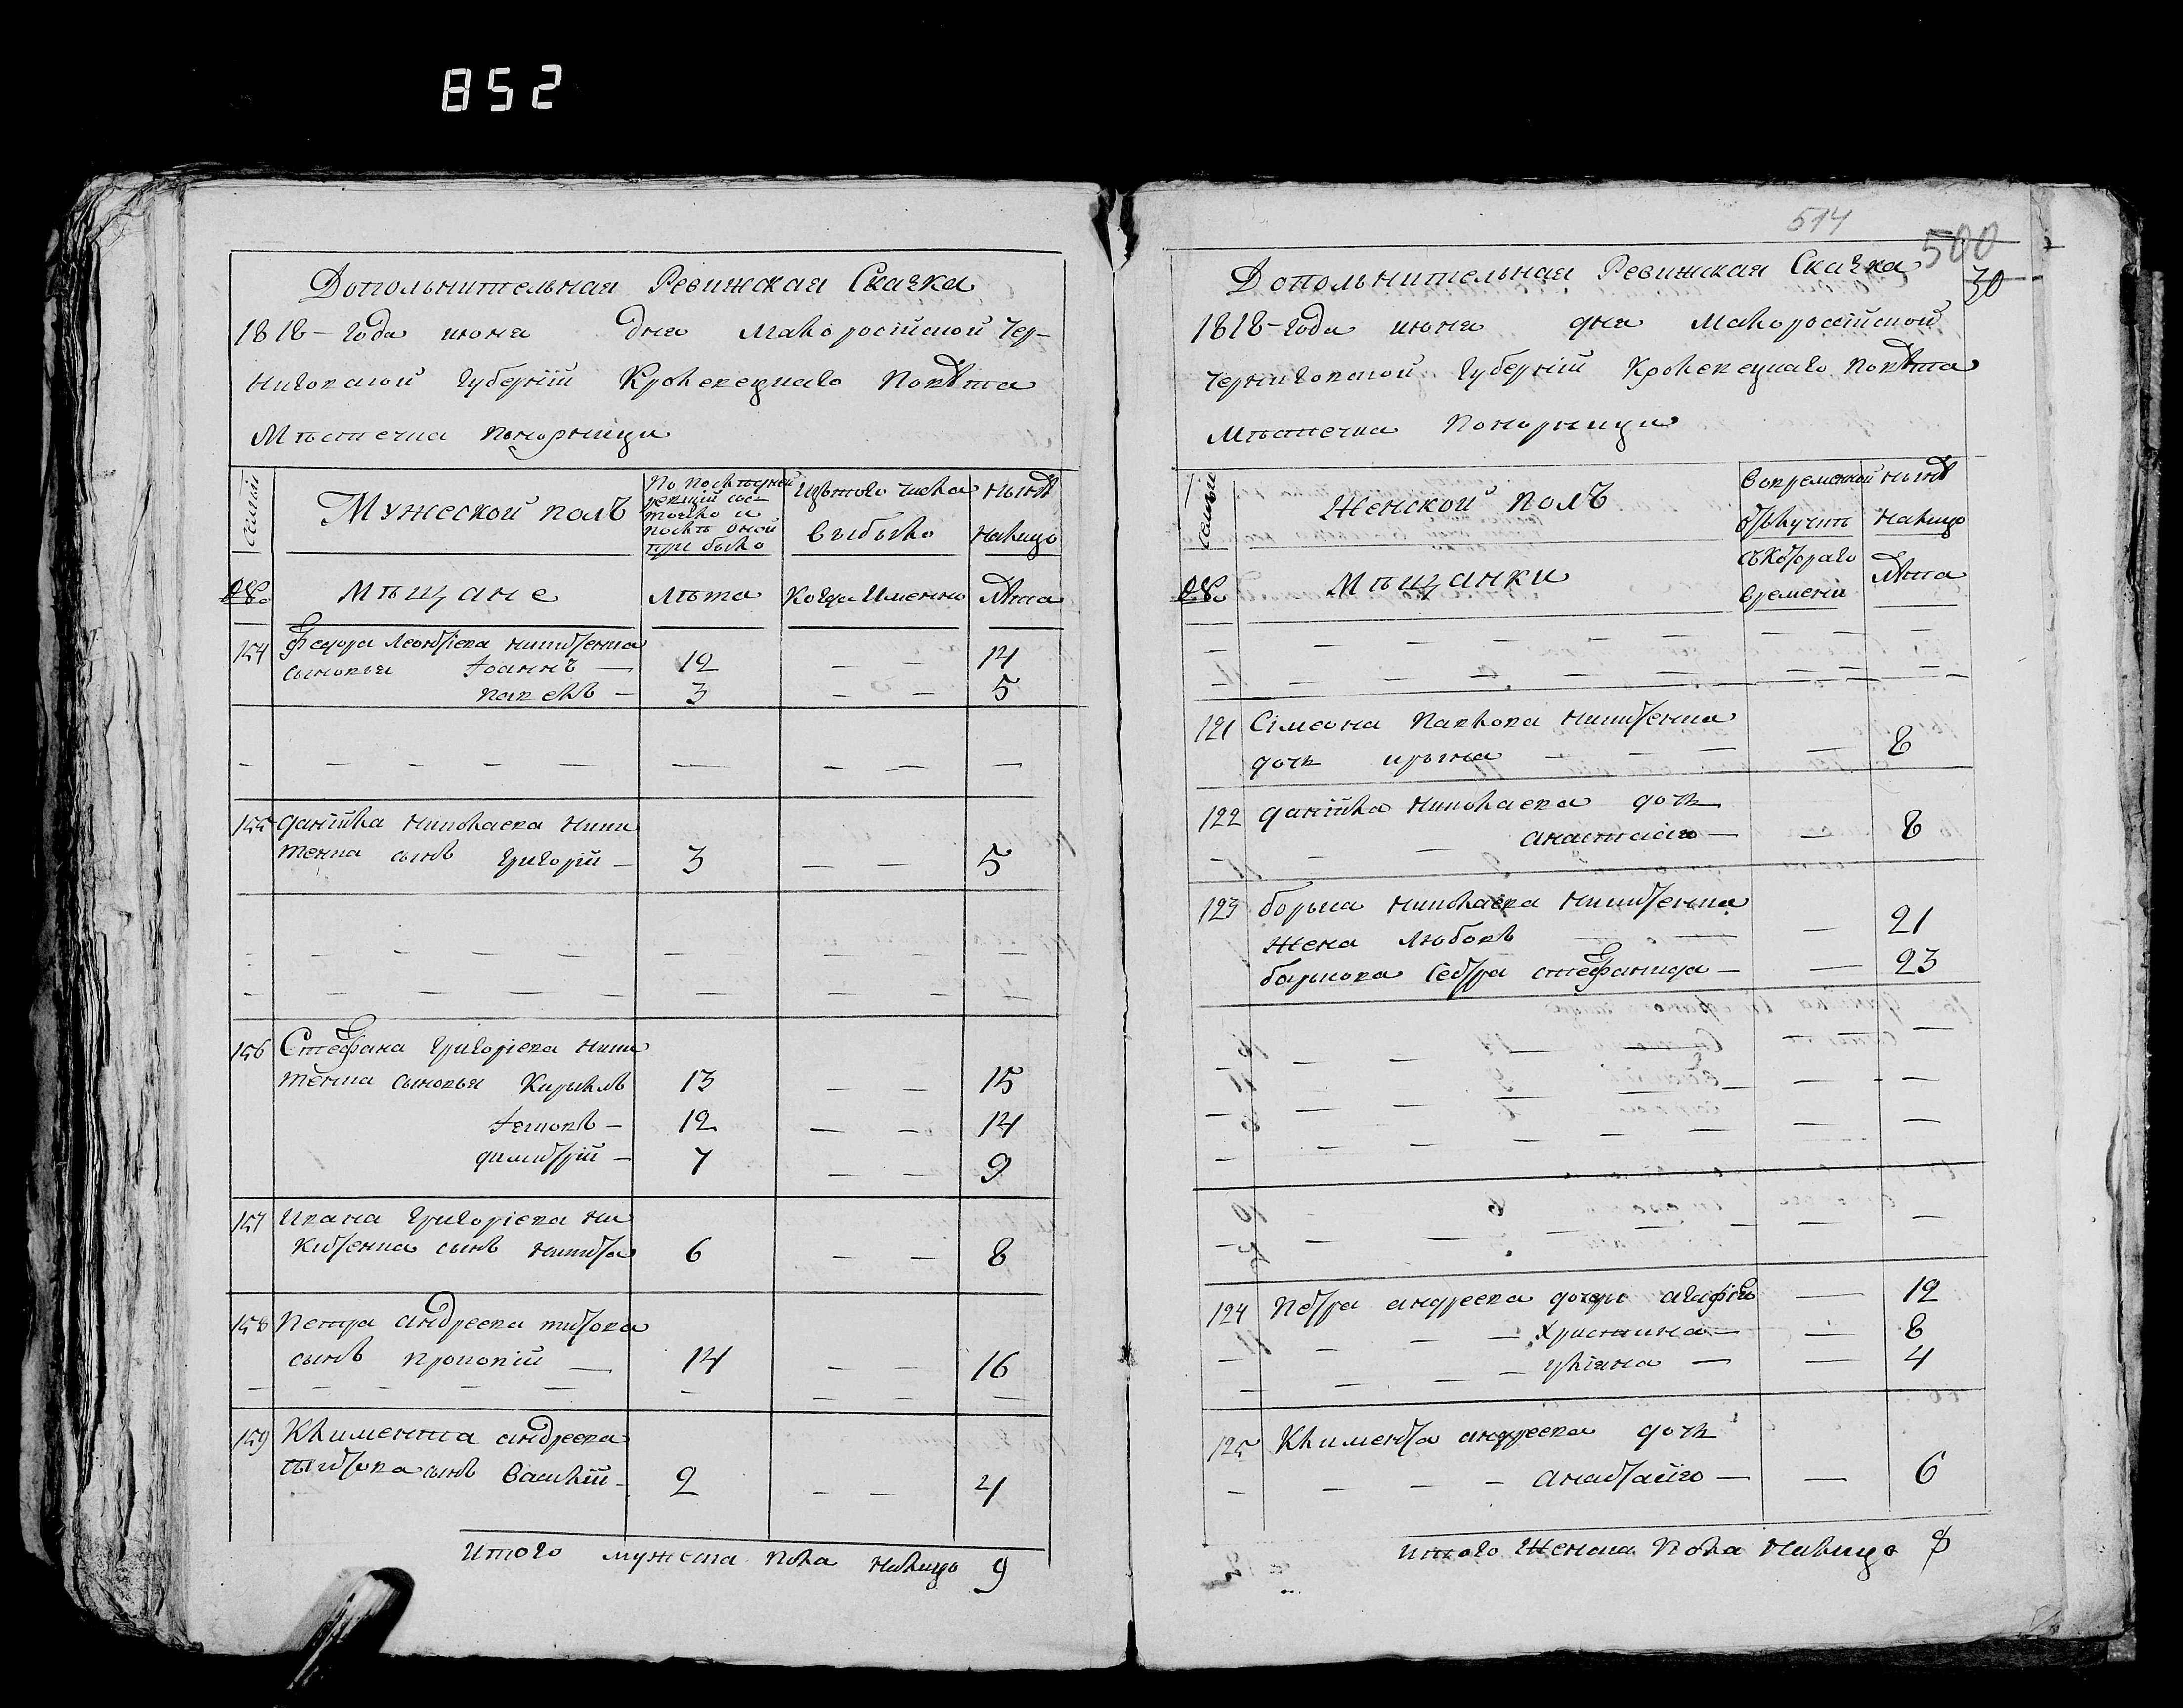 852
Дополнительная Ревижская Сказка
1818-года июня дня Малоросійской Чер-
ниговской Губерніи Кролевецкаго Повѣта
Мѣстечка Понорници
семьи
Мужеской полъ
По последней
ревизіи сос-
тояло и
послѣ оной
при было
Изътого числа
выбыло
нынѣ
налицо
№
Мѣщане
лѣта
Когда Именно
Лѣта
154 Федора Леонтіева Никитенка
сыновья Іоаннъ — 12 — — 14
павелъ — 3 — — 5
155 данійла николаева ники
тенка сынъ григорій — 3 — — 5
156 Стефана григоріева ники
тенка сыновья Кирылъ 13 — — 15
Іевъ — 12 — — 14
димитрій — 7 — — 9
157 Ивана григоріева ни
китенка сынъ никита 6 — — 8
158 Петра андреева титова
сынъ прокопій — 14 — — 16
159 Климента андреева
титова сынъ Василій — 2 — — 4
Итого мужеска пола налицо 9
514
500
30
Дополнительная Ревижская Сказка
1818-года июня дня Малоросійской
Черниговской Губерніи Кролевецкаго повѣта
Мѣстечка Понорници
семьи
Женской полъ
Вовременной
отлучкѣ
нынѣ
налицо
№
Мѣщанки
съкотораго
времени
Лѣта
121 Сімеона Павлова никитенка
дочь ирина — — — 8
122 данійла николаева дочь
анастасія — — 8
123 бориса николаева никитенка
жена любовъ — — — 21
борисова сестра стефанида — — 23
124 Петра андреева дочери агафія — 12
Христина — — 8
уліяна — — 4
125 Климента андреева дочь
анастасія — — 6
итого Женска пола налицо 8